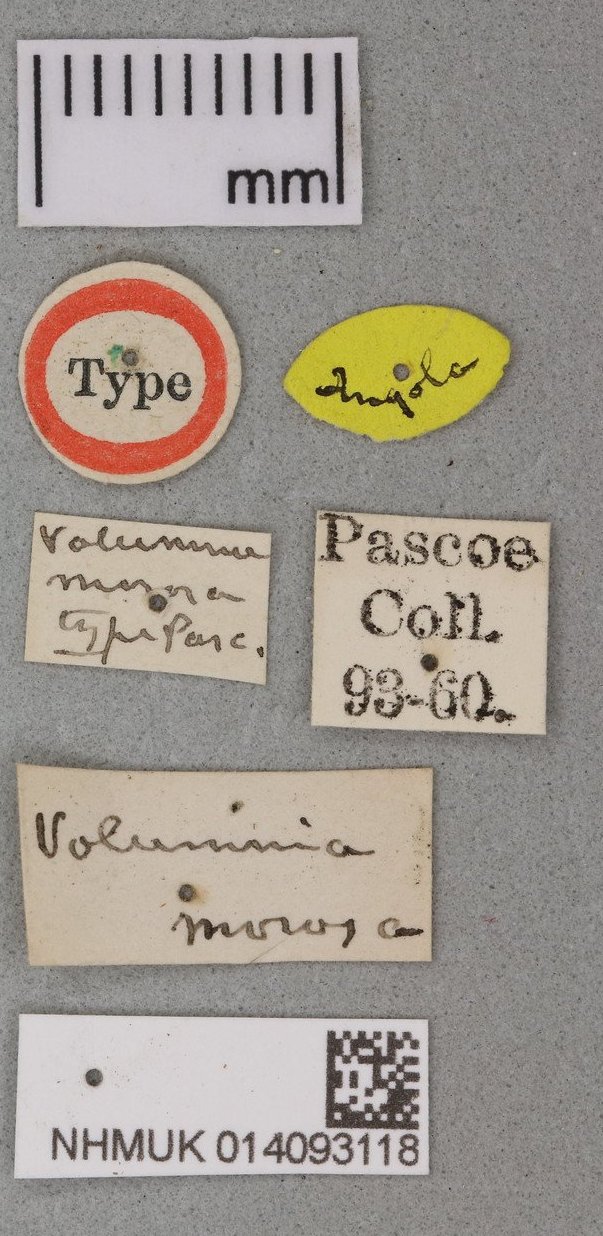 mm
Type
Angola
Volumnia
morosa
type Pasc.
Pascoe
Coll.
93-60.
Volumnia
morosa
NHMUK 014093118